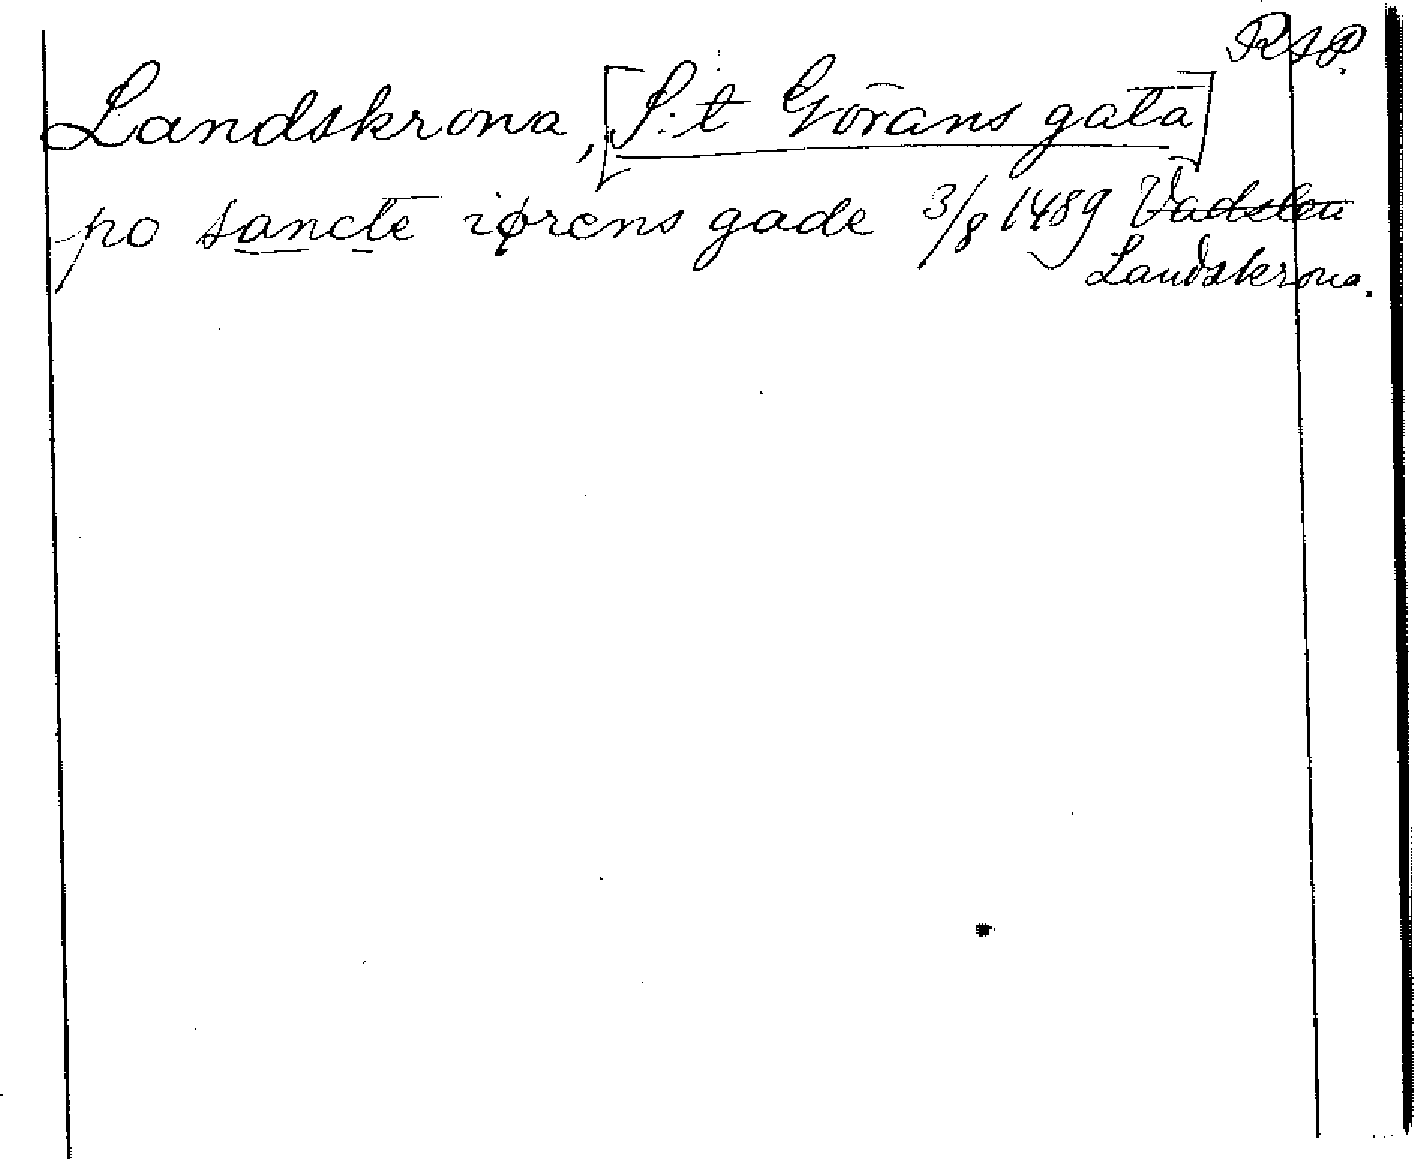 RAP.
Landskrona, [S:t Görans gata]
po sancte iørens gade 3/8 1489
Landskrona.